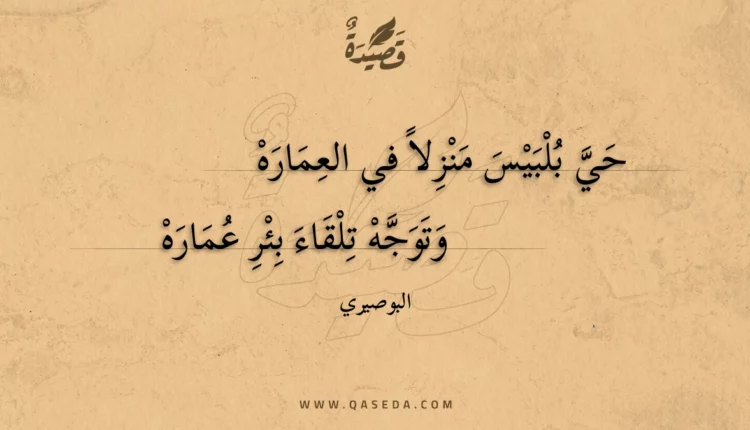 قَصِيْدَةٌ
حَيَّ بُلْبَيْسَ مَنْزِلاً في العِمَارَهْ
وَتَوَجَّهْ تِلْقَاءَ بِئْرِ عُمَارَهْ
البوصيري
WWW.QASEDA.COM